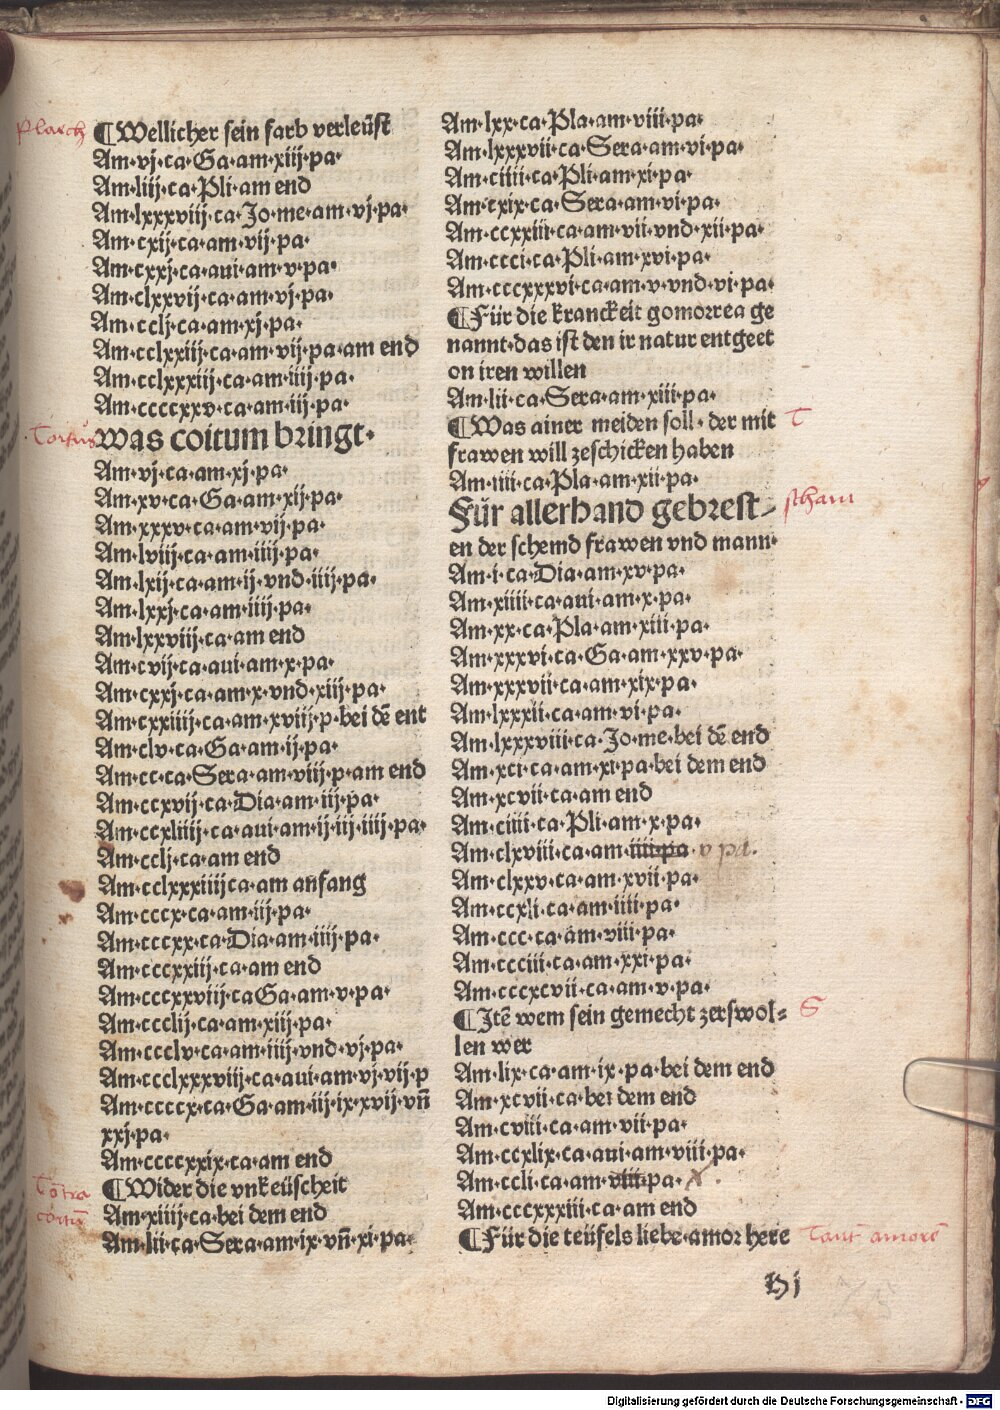 ¶Wellicher sein farb verleüst
Am·vj·ca·Ga·am·xiij·pa·
Am·liij·ca·Pli·am end
Am·lxxxviij·ca·Jo·me·am·vj·pa·
Am·cxij·ca·am·vij·pa·
Am·cxxj·ca·aui·am·v·pa·
Am·clxxvij·ca·am·vj·pa·
Am·cclj·ca·am·xj·pa·
Am·cclxxiij·ca·am·vij·pa·am end
Am·cclxxxiij·ca·am·iiij·pa·
Am·ccccxxv·ca·am·iij·pa·
was coitum bringt·
Am·vj·ca·am·xj·pa·
Am·xv·ca·Ga·am·xij·pa·
Am·xxxv·ca·am·vij·pa·
Am·lviij·ca·am·iiij·pa·
Am·lxij·ca·am·ij·vnd·iiij·pa·
Am·lxxj·ca·am·iiij·pa·
Am·lxxviij·ca·am end
Am·cvij·ca·aui·am·x·pa·
Am·cxxj·ca·am·x·vnd·xiij·pa·
Am·cxxiiij·ca·am·xviij·p·bei dē ent
Am·clv·ca·Ga·am·ij·pa·
Am·cc·ca·Sera·am·viij·p·am end
Am·ccxvij·ca·Dia·am·iij·pa·
Am·ccxliiij·ca·aui·am·ij·iij·iiij·pa·
Am·cclj·ca·am end
Am·cclxxxiiijca·am anfang
Am·cccx·ca·am·iij·pa·
Am·cccxx·ca·Dia·am·iiij·pa·
Am·cccxxiij·ca·am end
Am·cccxxviij·caGa·am·v·pa·
Am·ccclij·ca·am·xiij·pa·
Am·ccclv·ca·am·iiij·vnd·vj·pa·
Am·ccclxxxviij·ca·aui·am·vj·vij·p
Am·ccccx·ca·Ga·am·iij·ix·xvij·vn̄
xxj·pa·
Am·ccccxxix·ca·am end
¶Wider die vnkeüscheit
Am·xiiij·ca·bei dem end
Am·lii·ca·Sera·am·ix·vn̄·xi·pa·
Am·lxx·ca·Pla·am·viii·pa·
Am·lxxxvii·ca·Sera·am·vi·pa·
Am·ciiii·ca·Pli·am·xi·pa·
Am·cxix·ca·Sera·am·vi·pa·
Am·ccxxiii·ca·am·vii·vnd·xii·pa·
Am·ccci·ca·Pli·am·xvi·pa·
Am·cccxxxvi·ca·am·v·vnd·vi·pa·
¶Für die kranckeit gomorrea ge
nannt·das ist den ir natur entgeet
on iren willen
Am·lii·ca·Sera·am·xiii·pa·
¶Was ainer meiden soll·der mit
frawen will zeschicken haben
Am·iiii·ca·Pla·am·xii·pa·
Für allerhand gebrest=
en der schemd frawen vnd mann·
Am·i·ca·Dia·am·xv·pa·
Am·xiiii·ca·aui·am·x·pa·
Am·xx·ca·Pla·am·xiii·pa·
Am·xxxvi·ca·Ga·am·xxv·pa·
Am·xxxvii·ca·am·xix·pa·
Am·lxxxii·ca·am·vi·pa·
Am·lxxxviii·ca·Jo·me·bei dē end
Am·xci·ca·am·xi·pa·bei dem end
Am·xcvii·ca·am end
Am·ciiii·ca·Pli·am·x·pa·
Am·clxviii·ca·am·iiii·pa v pa.
Am·clxxv·ca·am·xvii·pa·
Am·ccxli·ca·am·iiii·pa·
Am·ccc·ca·am·viii·pa·
Am·ccciii·ca·am·xxi·pa·
Am·cccxcvii·ca·am·v·pa·
¶Jtē wem sein gemecht zerswol=
len wer
Am·lix·ca·am·ix·pa·bei dem end
Am·xcvii·ca·bei dem end
Am·cviii·ca·am·vii·pa·
Am·ccxlix·ca·aui·am·viii·pa·
Am·ccli·ca·am·viii·pa· x.
Am·cccxxxiii·ca·am end
¶Für die teüfels liebe·amor here
T
scham
S
Digitalisierung gefördert durch die Deutsche Forschungsgemeinschaft - DFG